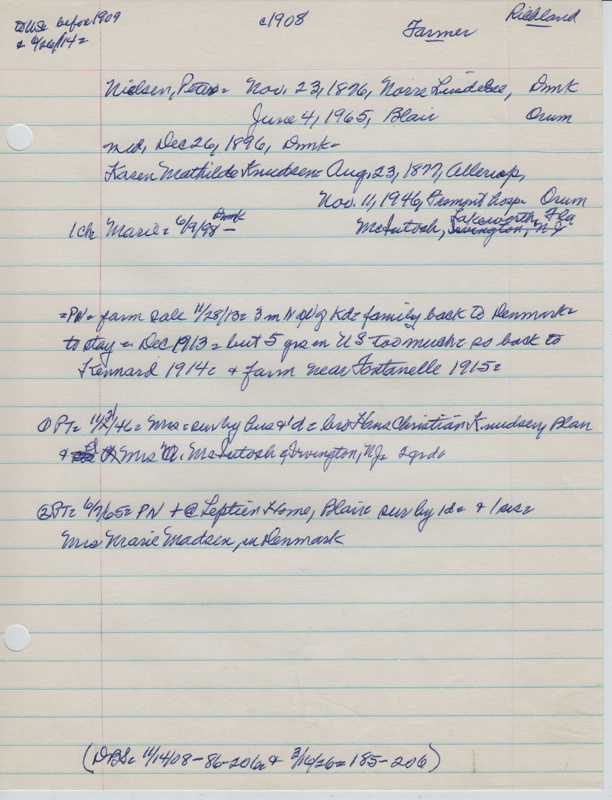 to US= before 1909
& 4/26/14=
c1908
Farmer
Richland
Nielsen, Peter= Nov. 23, 1876, Norre Lindelse, Dmk
June 4, 1965, Blair Orum
md, Dec 26, 1896, Dmk=
Karen Mathilde Knudsen= Aug. 23, 1877, Allerup,
Nov. 11, 1946, Fremont hosp. Orum
1 ch Marie= 6/9/98 Dmk McIntosh, Lakeworth, Fla
Irvington, NJ
=PN= farm sale 11/28/13= 3 m N of Kd= family back to Denmark=
to stay= Dec 1913= but 5 yrs in US too much= so back to
Kennard 1914= & farm near Fontanelle 1915=
① PT= 11/21/46= Mrs= sur by hus & 1 d= bro Hans Christian Knudsen, Blair
& Mrs M. McIntosh of Irvington, NJ= 2 grdc
② PT= 6/7/65= PN + @ Leptien Home, Blair= sur by 1 d= & 1 sis=
Mrs Marie Madsen, in Denmark
(DBS= 11/14/08-86-206= & 3/16/26= 185-206)